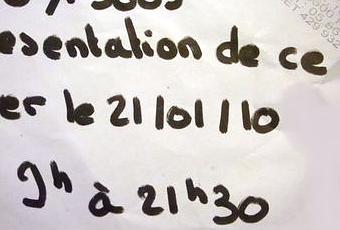 esentation de ce
er le 21/01/10
9h à 21h30